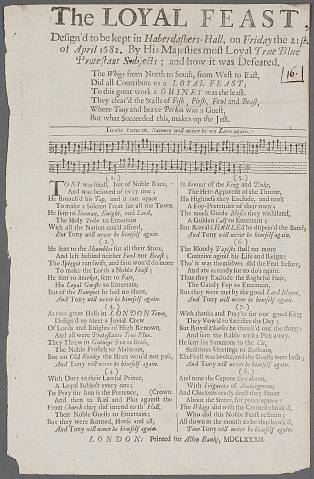 The LOYAL FEAST,
Design'd to be kept in Haberdashers-Hall, on Friday the 21st.
of April 1682. By His Majesties most Loyal True Blue
Protestant Subjects; and how it was Defeated.
The Whigs from North to South, from West to East,
Did all Contribute to a LOYAL FEAST;
To this great work a GUINEY was the least.
They clear'd the Stalls of Fish, Flesh, Fowl and Beast,
Where Tony and brave Perkin was a Guest,
But what Succeeded this, makes up the Jest.
16
To the Tune of, Sawney will never be my Love again.
(1.)
TONY was small, but of Noble Race,
And was beloved of ev'ry one;
He Broach'd his Tap, and it ran apace
To make a Solemn Treat for all the Town.
He sent to Yeoman, Knight, and Lord,
The Holy Tribe to Entertain
With all the Nation could afford,
But Tony will never be himself again.
(2.)
He sent to the Shambles for all their Store,
And left behind neither Fowl nor Beast;
The Spigot ran swift, and fain wou'd do more
To make the Lords a Noble Feast;
He sent to Market, sent to Fair,
His Loyal Guests to Entertain,
But of the Banquet he had no Share,
And Tony will never be himself again.
(3.)
At two great Halls in LONDON Town,
Design'd to meet a Jovial Crew
Of Lords and Knights of High Renown,
And all were Protestants True Blue.
They Threw in Guineys free as Brass,
The Noble Frolick to Maintain,
But on Old Rowley the Sham wou'd not pass,
And Tony will never be himself again.
(4.)
With Duty to their Lawful Prince,
A Loyal Subject every one;
To Pray for him is the Pretence,
And then to Rail and Plot against the (Crown.
From Church they did intend to th' Hall,
Their Noble Guests to Entertain;
But they were Routed, Horse and all,
And Tony will never be himself again.
(5.)
In favour of the King and Duke,
The Heir-Apparent of the Throne,
His Highness they Exclude, and took
A Fop-Pretender of their own;
The meek Guide Moses they withstand,
A Golden Calf to Entertain;
But Royal CHARLES he disperss'd the Band,
And Tony will never be himself again.
(6.)
The Bloody Papists shall no more
Contrive against his Life and Reign;
The it was themselves did the Feat before,
And are as ready for to do't again.
Thus they Exclude the Rightful Heir,
The Gaudy Fop to Entertain,
But they were met by the good Lord Mayor,
And Tony will never be himself again.
(7.)
With thanks and Pray'rs for our good King
They Vow'd to Sacrifice the Day;
But Royal Charles he smoak'd out the thing;
And sent the Rabble with a Pox away.
He sent his Summons to the Cit,
Seditious Meetings to Restrain,
The Feast was broke, and the Guests were bist,
And Tony will never be himself again.
(8.)
And now the Capons flye about,
With Fricasies of
And Chickens ready drest they Shout
About the Street, for pence apiece:
The Whigs did with the Council chouk'd,
Who did this Noble Feast restrain;
All down in the mouth to be thus bawlk'd,
Poor Tony will never be himself again.
LONDON: Printed for Allen Banks, MDCLXXXII.